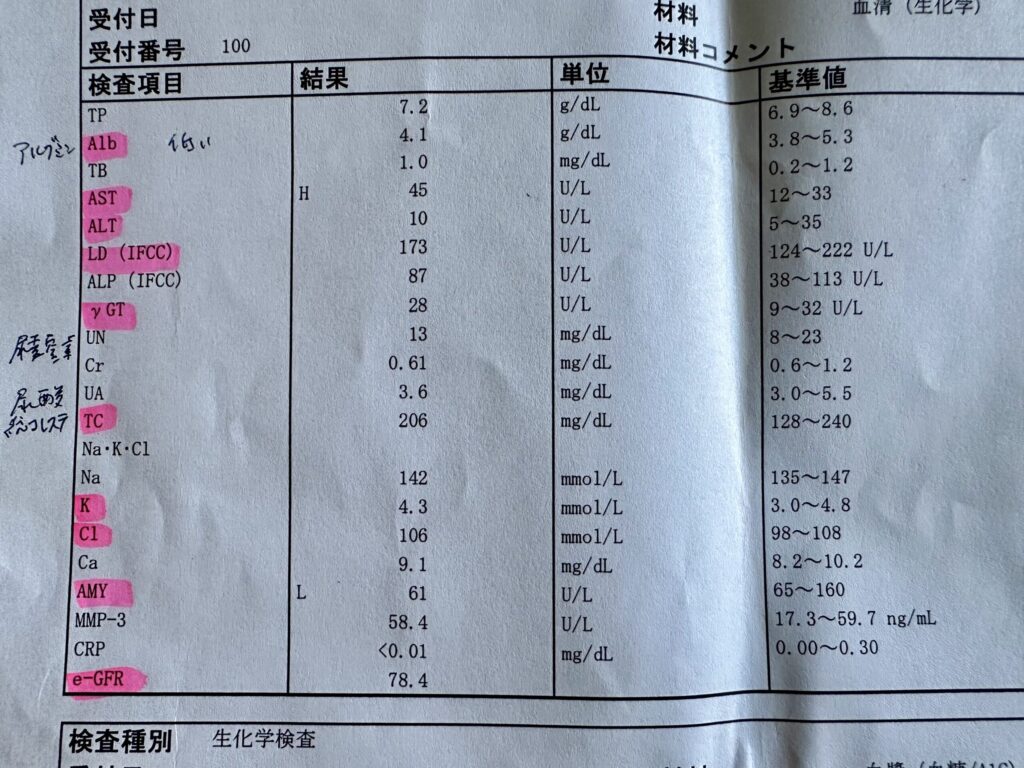 受付日 材料 血清（生化学）
受付番号 100 材料コメント
検査項目 結果 単位 基準値
TP 7.2 g/dL 6.9～8.6
アルブミン Alb 低い 4.1 g/dL 3.8～5.3
TB 1.0 mg/dL 0.2～1.2
AST H 45 U/L 12～33
ALT 10 U/L 5～35
LD (IFCC) 173 U/L 124～222 U/L
ALP (IFCC) 87 U/L 38～113 U/L
γGT 28 U/L 9～32 U/L
尿素窒素 UN 13 mg/dL 8～23
Cr 0.61 mg/dL 0.6～1.2
尿酸 UA 3.6 mg/dL 3.0～5.5
総コレステ TC 206 mg/dL 128～240
Na・K・Cl
Na 142 mmol/L 135～147
K 4.3 mmol/L 3.0～4.8
Cl 106 mmol/L 98～108
Ca 9.1 mg/dL 8.2～10.2
AMY L 61 U/L 65～160
MMP-3 58.4 U/L 17.3～59.7 ng/mL
CRP <0.01 mg/dL 0.00～0.30
e-GFR 78.4
検査種別 生化学検査